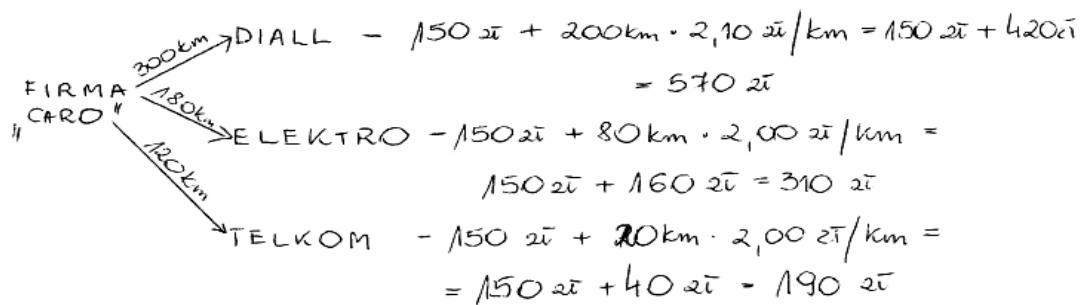 300km DIALL - 150 zł + 200km · 2,10 zł/km = 150 zł + 420zł
= 570 zł
FIRMA
„CARO"
180km ELEKTRO - 150zł + 80km · 2,00 zł/km =
150zł + 160 zł = 310 zł
120km TELKOM - 150 zł + 20km · 2,00 zł/km =
= 150zł + 40 zł - 190 zł